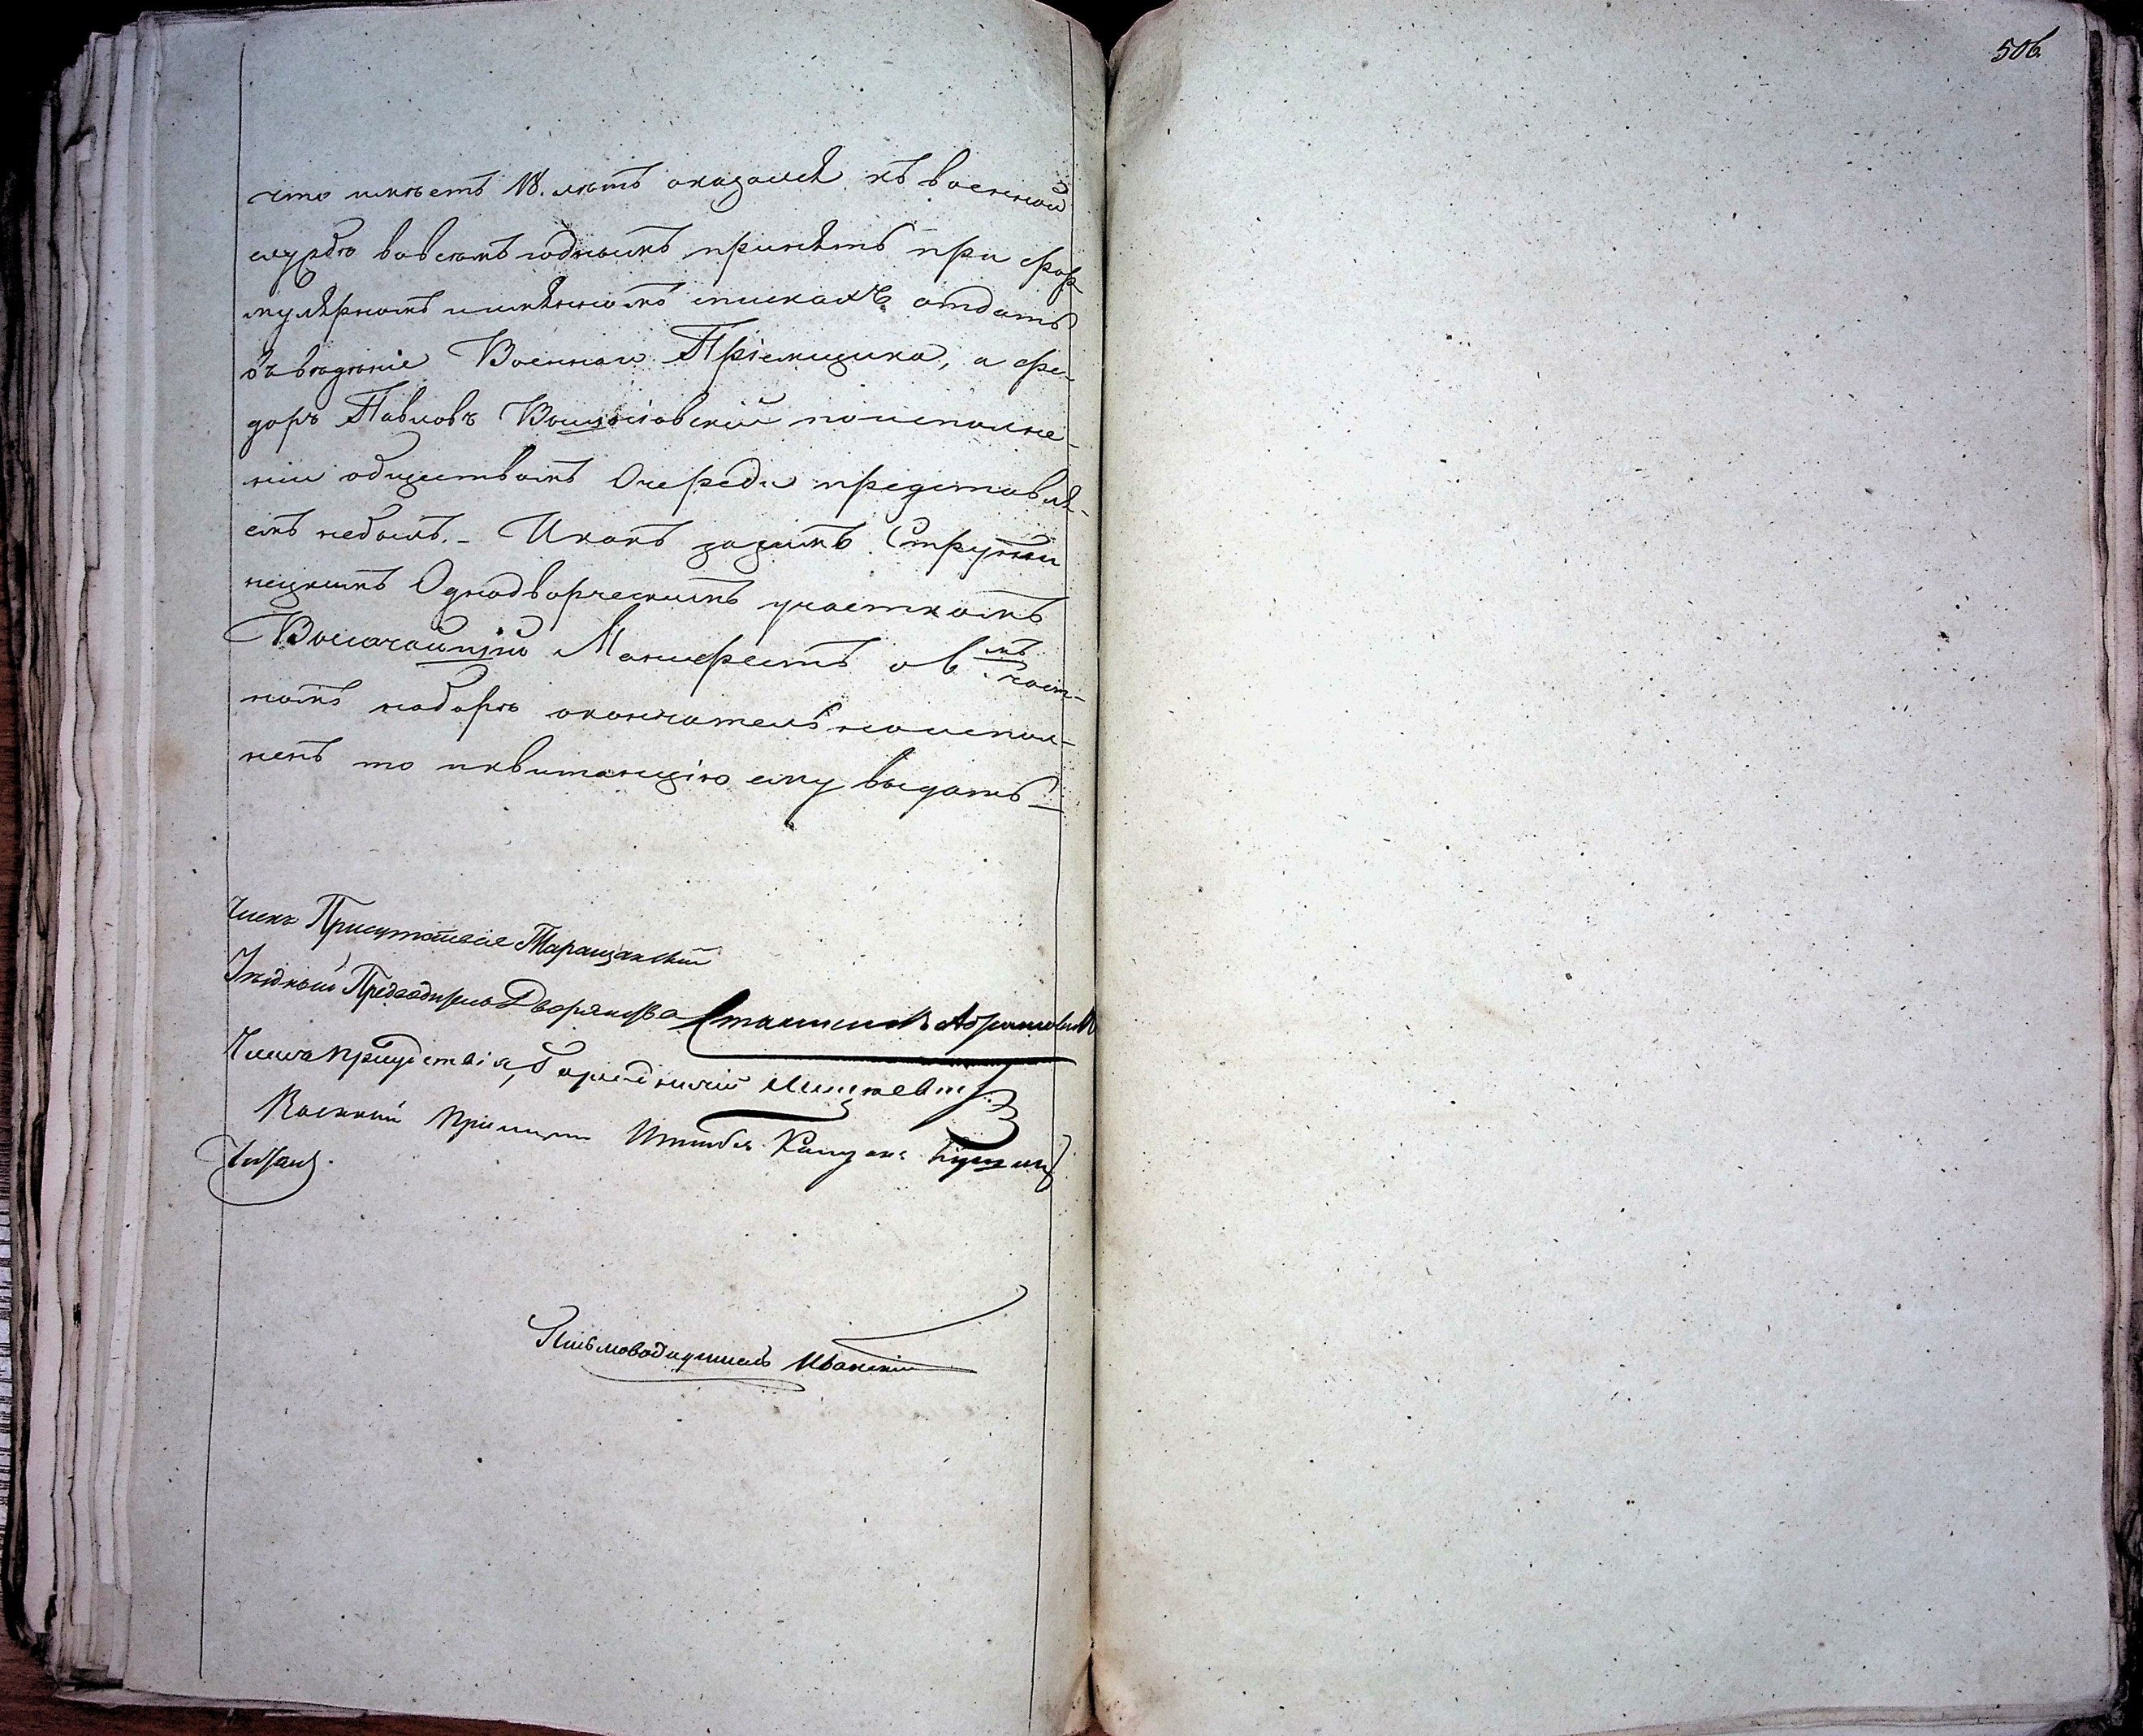 506.
что имѣетъ 18. лѣтъ оказался къ военной
службѣ вовсемъ годнымъ принять при фор
мулярномъ имянномъ спискахъ отдать
въ вѣдѣніе Военнаго Пріемщика, а Фе-
доръ Павловъ поисполне-
ніи обществомъ Очереди представля-
емъ небылъ. - Икакъ засимъ
Однодворческимъ участкомъ
Высочайшій Манифестъ о 6 мъ част-
номъ наборѣ окончательно испол-
ненъ то иквитанцію ему выдать
Членъ Присутствія Таращанскій
Уѣздный Предводитель Дворянства
Членъ присудствія, Городничій
Военный Пріемщикъ Штабсъ Капитанъ
Письмоводитель Иванскій